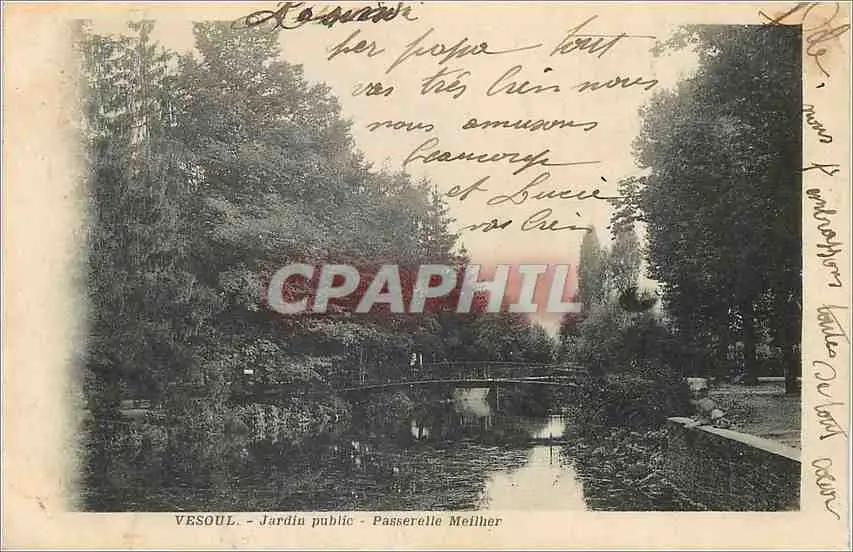 per papa tout
vas très bien nous
nous amusons
beaucoup
et Lucie
vas bien
nous t'embrassons toutes de tout cœur
CPAPHIL
VESOUL. - Jardin public - Passerelle Meilher